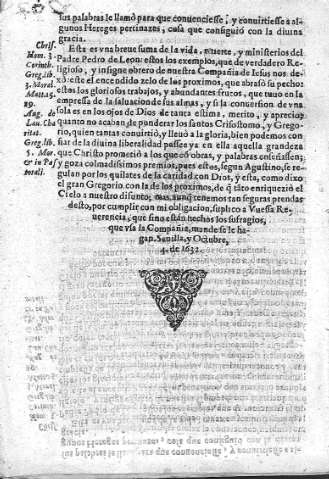 sus palabras le llamò para que convenciesse, y convirtiesse a al-
gunos Hereges pertinazes, cosa que consiguiò con la diuina
gracia.
Esta es vna breue suma de la vida, muerte, y ministerios del
Padre Pedro de Leon: estos los exemplos, que de verdadero Re-
ligioso, y insigne obrero de nuestra Compañia de Iesus nos de-
xò: este el encendido zelo de los proximos, que abrasò su pecho:
estos los gloriosos trabajos, y abundantes frutos, que tuuo en la
empresa de la saluacion de sus almas, y si la conuersion de vna
sola es en los ojos de Dios de tanta estima, merito, y aprecio,
quanto no acaban de ponderar los Santos Crisostomo, y Grego-
rio, quien tantas conuirtiò, y lleuò a la gloria, bien podemos con
fiar de la diuina liberalidad possee ya en ella aquella grandeza
que Christo prometiò a los que cō obras, y palabras enseñassen;
y goza colmadissimos premios, pues estos, segun Agustino, se re-
gulan por los quilates de la caridad con Dios, y esta, como dixo
el gran Gregorio con la de los proximos, de q̃ tāto enriqueziò el
Cielo a nuestro difunto; mas aunq̃ tenemos tan seguras prendas
desto, por cumplir con mi obligacion, suplico a Vuessa Re-
uerencia, que sino estàn hechos los sufragios,
que vsa la Compañia, mande se le ha-
gan. Seuilla, y Octubre,
4. de 1632.
Chris.
Hom. 3.
Corinth.
Greg. lib.
Matt. 5.
19.
Aug. de
Lau. Cha
ritat.
Greg. lib.
5. Mor.
& in Pas
torali.